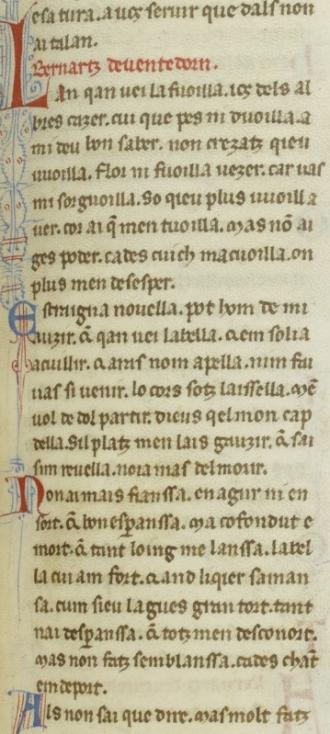 esa tura. auetz seruir que dals non
ai talan.
Bernartz deuentedorn.
Lan qan uei la fuoilla. ios dels al
bres cazer. cui que pes ni duoilla. a
mi deu bon saber. non crezatz qieu
uuoilla. flor ni fuoilla uezer. car uas
mi sorguoilla. So qieu plus uuoill a
uer. cor ai q̃ men tuoilla. Mas nō ai
ges poder. cades cuich macuoilla. on
plus men desesper.
Estraigna nouella. pot hom de mi
auzir. Q̃ qan uei la bella. qem solia
acuillir. Aras nom apella. nim fai
uas si uenir. lo cors sotz laissella. mē
uol de dol partir. dieus qel mon cap
della. Sil platz men lais gauzir. Q̃ sai
sim reuella. noia mas del morir.
Non ai mais fianssa. en agur ni en
sort. Q̃ bon esp̃anssa. Ma cofondut e
mort. Q̃ tant loing me lanssa. la bel
la cui am fort. qand liqier saman
sa. cum sieu lagues gran tort. tant
nai desp̃anssa. Q̃ totz men desconort.
Mas non fatz semblanssa. cades chāt
em deport.
Als non sai que dire. mas molt fatz